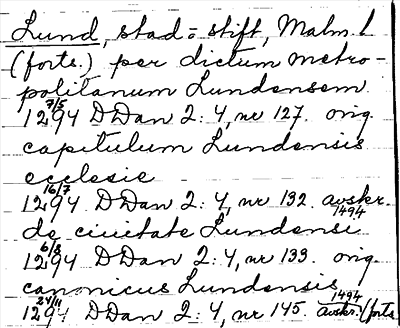 Lund, stad = stift, Malm. l
(forts.) per dictum metro-
politanum Lundensem
7/5
1294 DDan 2:4, nr 127. orig.
capitulum Lundensis
ecclesie
16/7
1294 DDan 2:4, nr 132. avskr.
1494
de ciuitate Lundensi
6/8
1294 DDan 2:4, nr 133. orig
canonicus Lundensis
24/11
1294 DDan 2:4, nr 145. avskr. (forts
1494